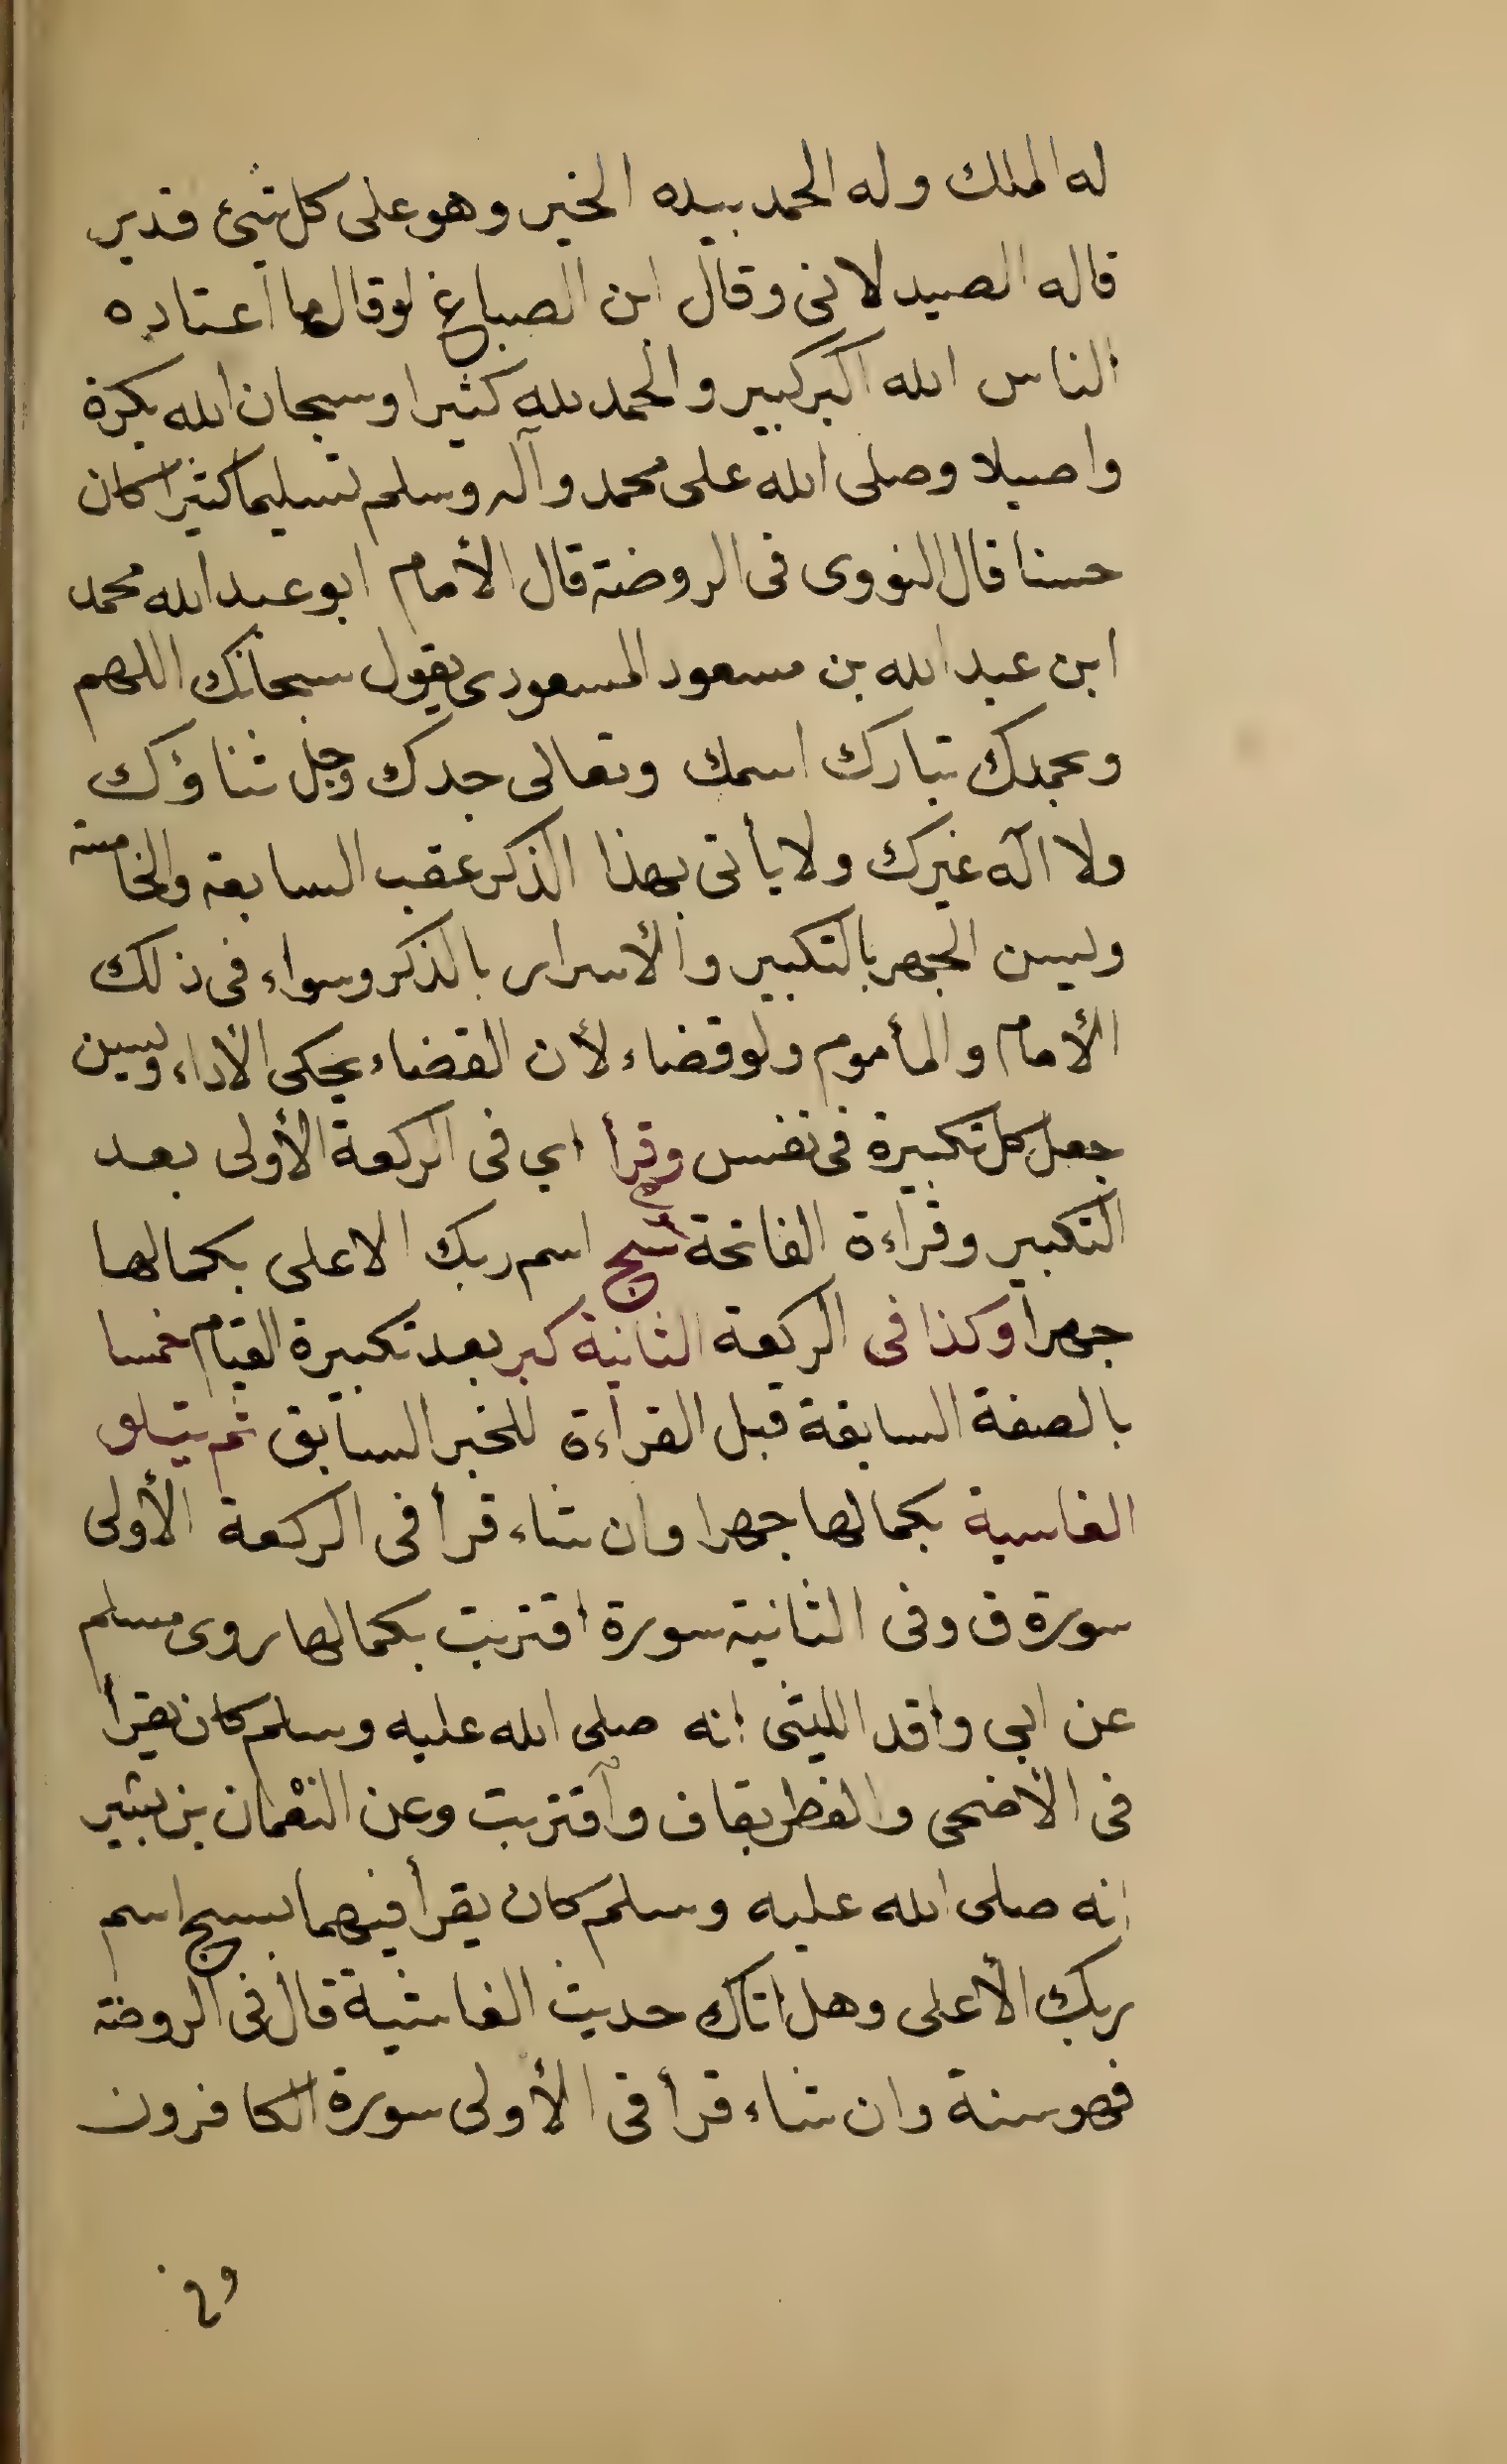 له الملك وله الحمد بيده الخير وهو على كل شئ قدير
قاله الصيدلانى وقال ابن الصباغ لو قال ما اعتاده
الناس الله اكبر كبير والحمد لله كثيرا وسبحان الله بكرة
واصيلا وصلى الله على محمد وآله وسلم تسليما كثيرا كان
حسنا قال النووى فى الروضة قال الأمام ابو عبد الله محمد
ابن عبد الله بن مسعود المسعودى يقول سبحانك اللهم
وبحمدك تبارك اسمك وتعالى جدك وجل ثناؤك
ولا اله غيرك ولا يأتى بهذا الذكر عقب السابعة والخامسة
ويسن الجهر بالتكبير والأسرار بالذكر وسواء فى ذلك
الأمام والمأموم ولو قضاء لأن القضاء يحكى الأداء ويسن
جعل كل تكبيرة فى نفس وقرأ اي فى الركعة الأولى بعد
التكبير وقراءة الفاتحة سبح اسم ربك الاعلى بكمالها
جهرا وكذا فى الركعة الثانية كبر بعد تكبيرة القيام خمسا
بالصفة السابقة قبل القراءة للخبر السابق ثم يتلو
الغاسية بكمالها جهرا وان شاء قرأ فى الركعة الأولى
سورة ق وفى الثانية سورة اقتربت بكمالها روى مسلم
عن ابي واقد الليثى انه صلى الله عليه وسلم كان يقرأ
فى الأضحى والفطر بقاف واقتربت وعن النعْمان بن بشير
انه صلى الله عليه وسلم كان يقرأ فيهما بسبح اسم
ربك الأعلى وهل اتاك حديث الغاشية قال فى الروضة
فهو سنة وان شاء قرأ فى الأولى سورة الكافرون
وفى